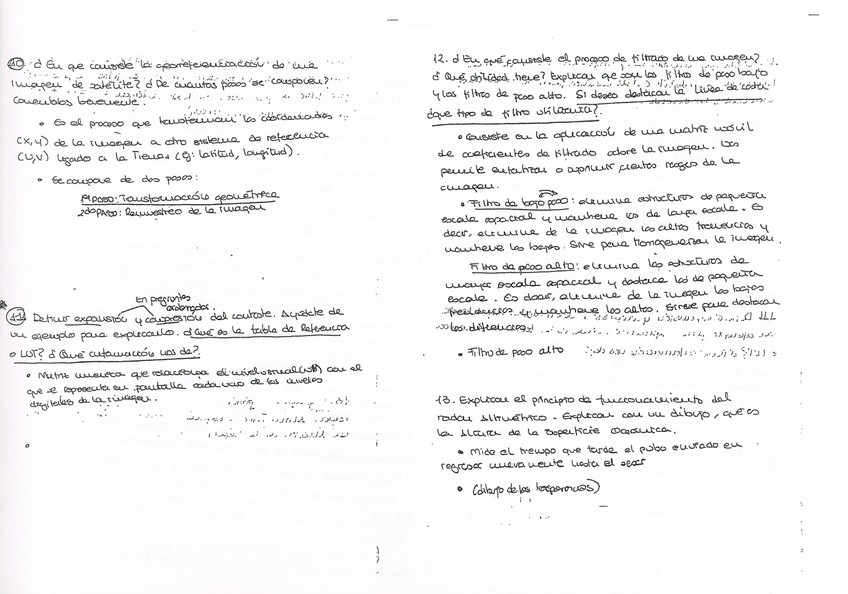 10 ¿En que consiste la georeferenciación de una
imagen de satélite? ¿De cuantos pasos se componen?
Comentalos brevemente.
• Es el proceso que transforman las coordenadas
(x,y) de la imagen a otro sistema de referencia
(U,V) ligado a la Tierra (Ej: latitud, longitud).
• Se compone de dos pasos:
1º PASO: Transformación geométrica
2do PASO: Remuestreo de la imagen
En preguntas
11 Definir expansión y compresión del contraste. Ayúdate de
un ejemplo para explicarlo. ¿Qué es la tabla de referencia
o LUT? ¿Qué información nos da?
• Matriz numérica que relaciona el nivel visual (NV) con el
que se representa en pantalla cada uno de los niveles
digitales de la imagen.
12. ¿En qué consiste el proceso de filtrado de una imagen?
¿Qué utilidad tiene? Explicar que son los filtro de paso bajo
y los filtro de paso alto. Si deseo destacar la línea de costa
¿que tipo de filtro utilizaría?
• Consiste en la aplicación de una matriz móvil
de coeficientes de filtrado sobre la imagen. Nos
permite enfatizar o suprimir ciertos rasgos de la
imagen.
• Filtro de bajo paso: elimina estructuras de pequeña
escala espacial y mantiene los de larga escala. Es
decir, elimina de la imagen las altas frecuencias y
mantiene las bajas. Sirve para homogeneizar la imagen.
Filtro de paso alto: elimina las estructuras de
mayor escala espacial y destaca las de pequeña
escala. Es decir, elimina de la imagen las bajas
frecuencias y mantiene las altas. Sirve para destacar
las diferencias
• Filtro de paso alto
13. Explicar el principio de funcionamiento del
radar altimétrico. Explicar con un dibujo, qué es
la altura de la superficie oceánica.
• Mide el tiempo que tarda el pulso enviado en
regresar nuevamente hasta el
• (dibujo de los)